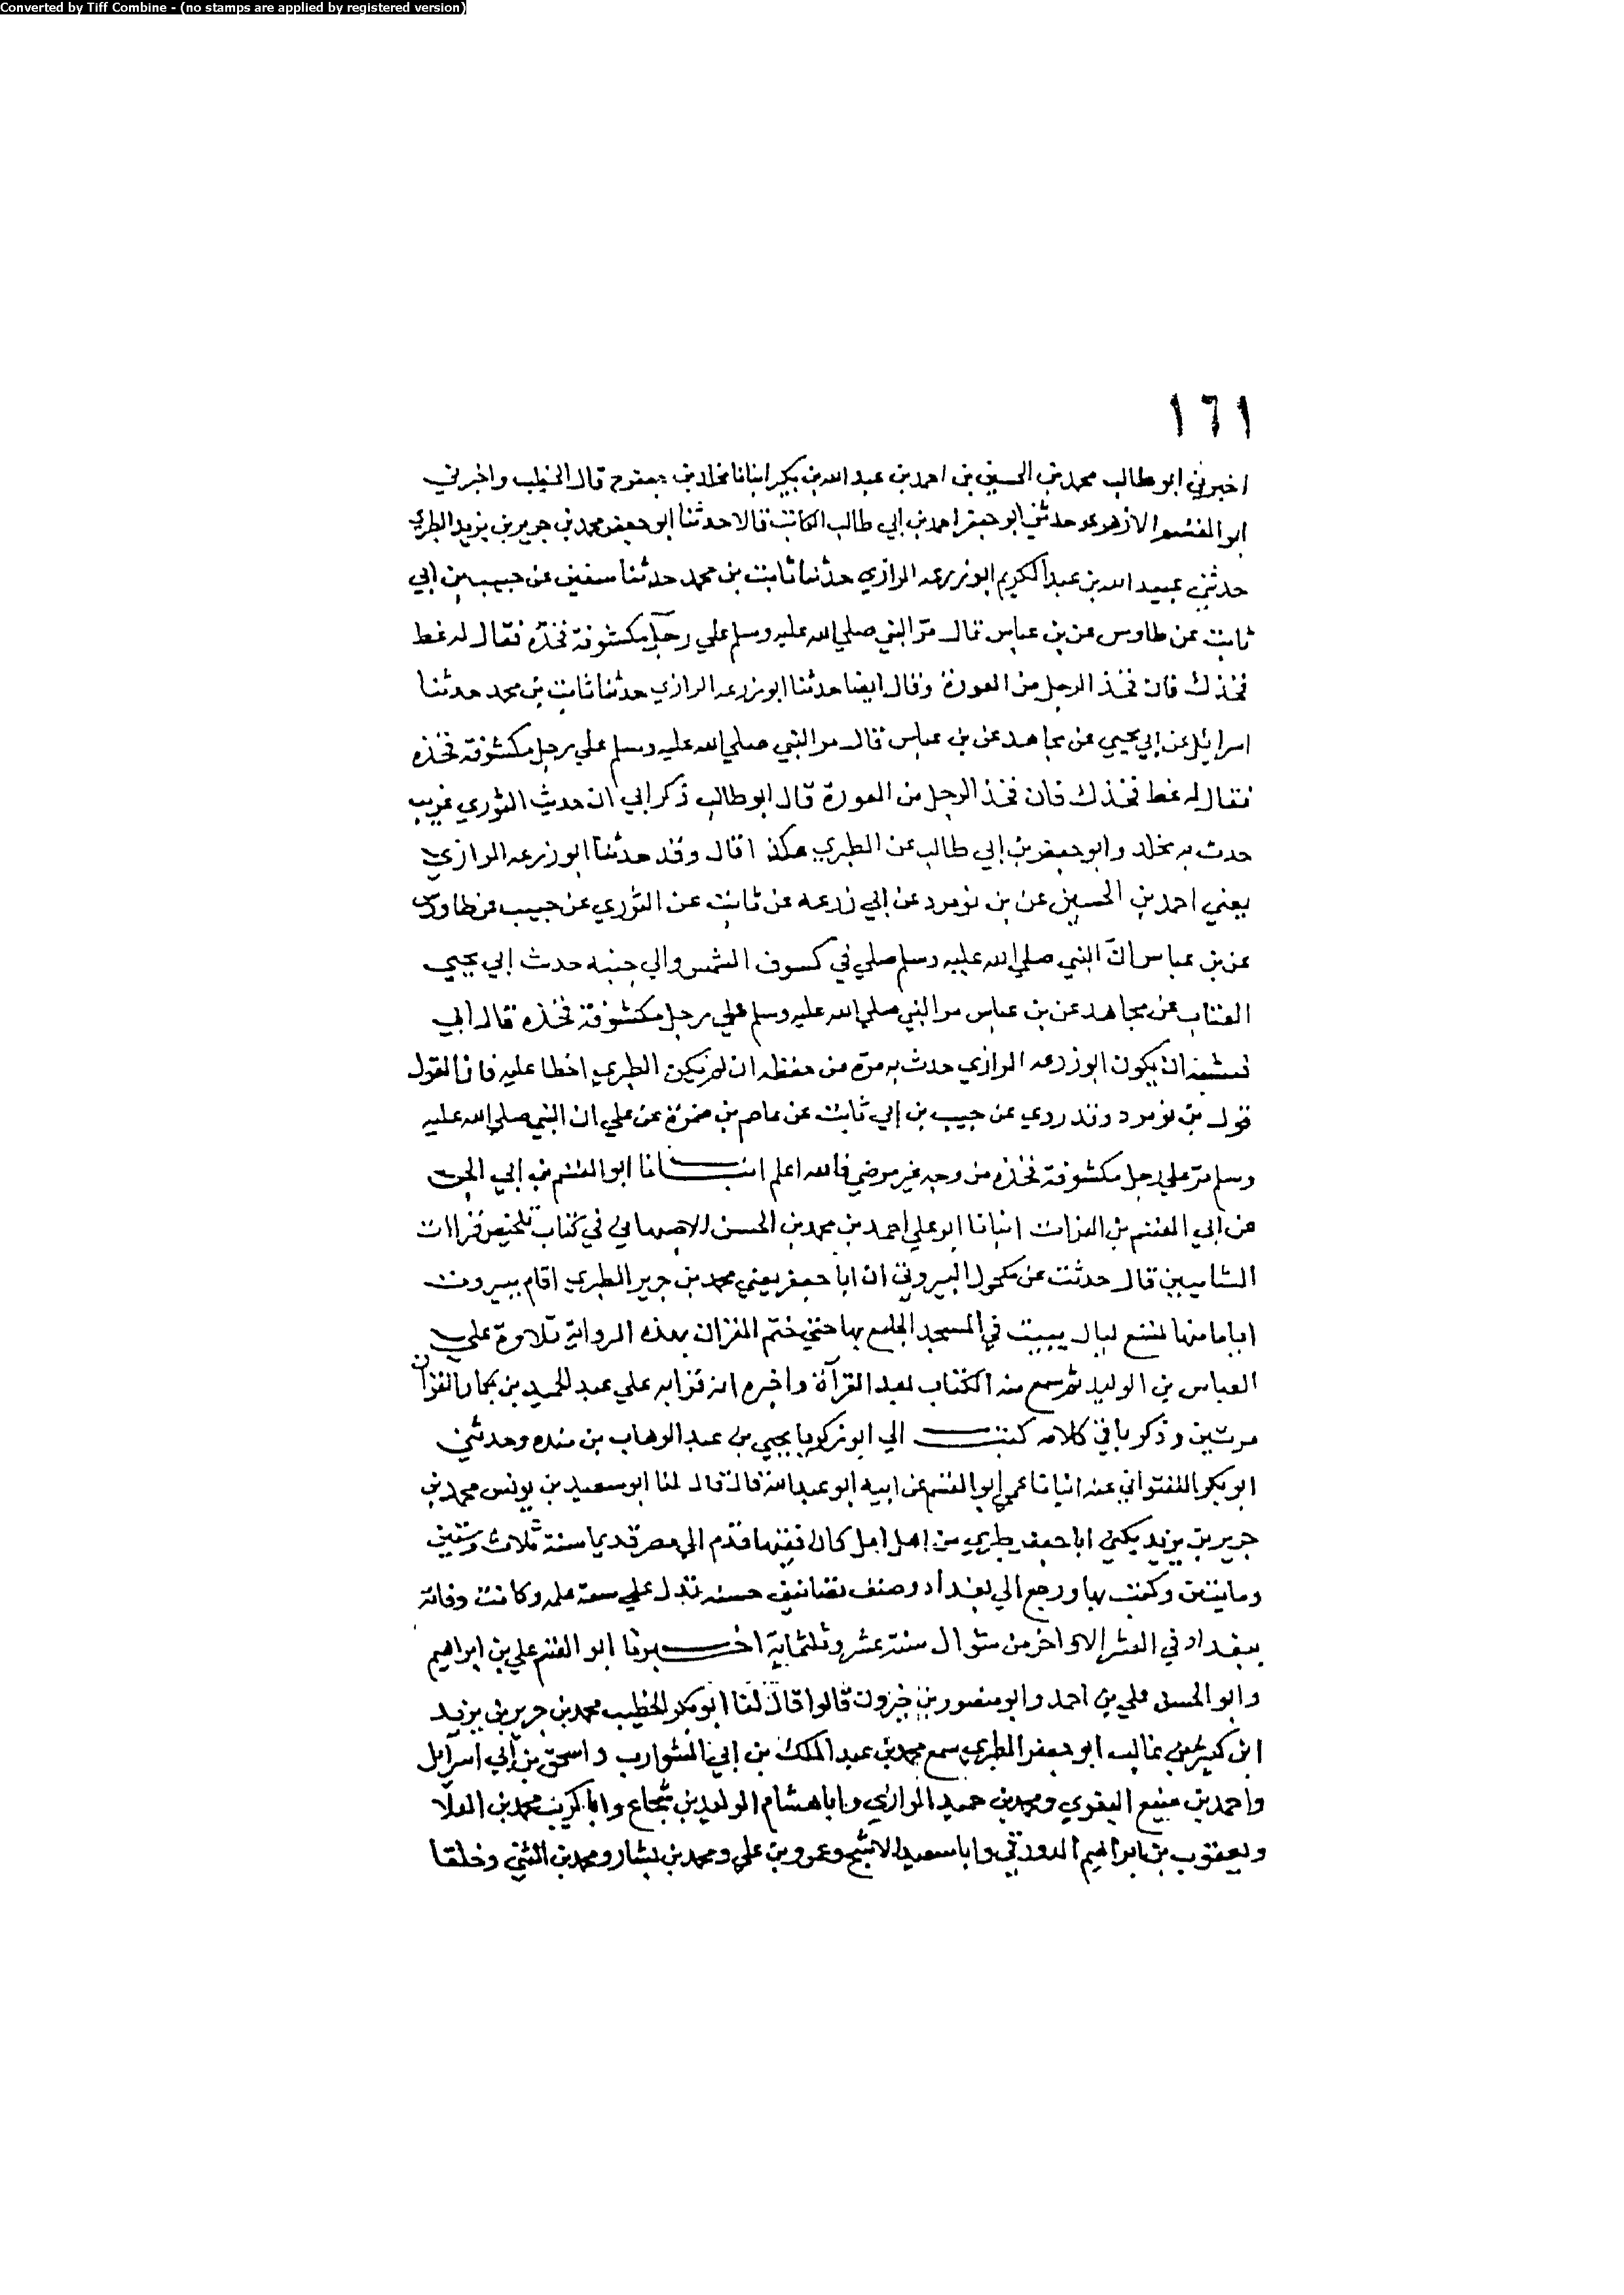 Converted by Tiff Combine - (no stamps are applied by registered version)
١٦١
اخبرني ابو طالب محمد بن الحسين بن احمد بن عبد الله بن بكير انبانا مخلد بن جعفر ح قال الخطيب واخبرني
ابو القسم الازهري حدثني ابو جعفر احمد بن ابي طالب الكاتب قالا حدثنا ابو جعفر محمد بن جرير بن يزيد الطبري
حدثني عبيد الله بن عبد الكريم ابو زرعه الرازي حدثنا ثابت بن محمد حدثنا سفين عن حبيب بن ابي
ثابت عن طاوس عن بن عباس قال مرّ النبي صلي الله عليه وسلم علي رجل مكشوفة فخذه فقال له غط
فخذك فان فخذ الرجل من العورة وقال ايضا حدثنا ابو زرعه الرازي حدثنا ثابت بن محمد حدثنا
اسرائيل عن ابي يحيي عن مجاهد عن بن عباس قال مر النبي صلي الله عليه وسلم علي رجل مكشوفة فخذه
فقال له غط فخذك فان فخذ الرجل من العورة قال ابو طالب ذكر ابي ان حديث الثوري غريب
حدث به مخلد وابو جعفر بن ابي طالب عن الطبري هكذا قال وقد حدثنا ابو زرعه الرازي
يعني احمد بن الحسين عن بن نومرد عن ابي زرعه عن ثابت عن الثوري عن حبيب عن طاوس
عن بن عباس انّ النبي صلي الله عليه وسلم صلي في كسوف الشمس والي جنبه حدث ابي يحيي
القتاب عن مجاهد عن بن عباس مر النبي صلي الله عليه وسلم علي رجل مكشوفة فخذه قال ابي
نشبه ان يكون ابو زرعه الرازي حدث به مرة من حفظه ان لم يكن الطبري اخطا عليه فان القول
قول بن نومرد وقد روي عن حبيب بن ابي ثابت عن عاصم بن ضمرة عن علي ان النبي صلي الله عليه
وسلم مرّ علي رجل مكشوفة فخذه من وجه غير مرضي فالله اعلم انبانا ابو القسم بن ابي الجن
عن ابي القسم بن الفرات انبانا ابو علي احمد بن محمد بن الحسن الاصبهاني في كتاب تلخيص قراات
الشاميين قال حدثت عن مكحول البيروتي ان ابا جعفر يعني محمد بن جرير الطبري اقام ببيروت
اياما منها تسع ليال يبيت في المسجد الجامع بها حتي ختم القران بهذه الرواية تلاوة علي
العباس بن الوليد ثم سمع منه الكتاب بعد القرآة واخبره انه قرا به علي عبد الحميد بن بكار القرآن
مرتين وذكر باقي كلامه كتب الي ابو زكريا يحيي بن عبد الوهاب بن منده وحدثني
ابو بكر اللفتواني عنه انبانا عمي ابو القسم عن ابيه ابو عبد الله قال قال لنا ابو سعيد بن يونس محمد بن
جرير بن يزيد يكني ابا جعفر طبري من اهل امل كان فقيها قدم الي مصر قديما سنة ثلاث وستين
ومايتين وكتب بها ورجع الي بغداد وصنف تصانيف حسنه تدل علي سعة علمه وكانت وفاته
ببغداد في العشر الاواخر من شوال سنة عشر وثلثماية اخبرنا ابو القسم علي بن ابراهيم
وابو الحسن علي بن احمد وابو منصور بن خيرون قالوا قال لنا ابو بكر الخطيب محمد بن جرير بن يزيد
ابن كثير بن غالب ابو جعفر الطبري سمع محمد بن عبد الملك بن ابي الشوارب واسحق بن ابي اسرآيل
واحمد بن منيع البغوي ومحمد بن حميد الرازي وابا هشام الوليد بن شجاع وابا كريب محمد بن العلا
ويعقوب بن ابراهيم الدورقي وابا سعيد الاشج وعمرو بن علي ومحمد بن بشار ومحمد بن المثني وخلقا